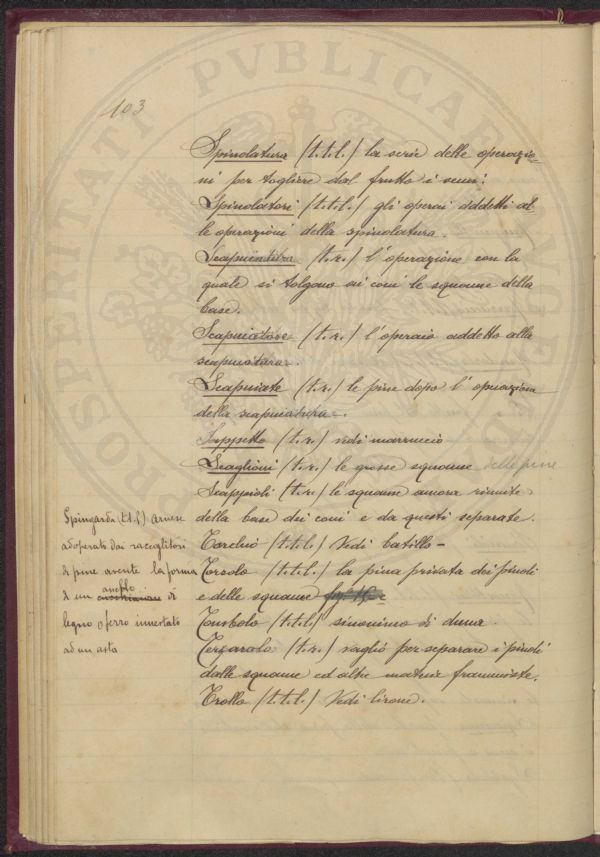 103
PROSPERITATI PVBLICAE
Spinolatura (t.t.l.) la serie delle operazio=
ni per togliere dal frutto i semi.
Spinolatori (t.t.l.) gli operai addetti al
le operazioni della spinolatura.
Scapuciatura (t.r.) l'operazione con la
quale si tolgono ai coni le squame della
base.
Scapuciatore (t.r.) l'operaio addetto alla
scapuciatura.
Scapuciate (t.r.) le pine dopo l'operazione
della scapuciatura.
Zappetto (t.r.) vedi marruccio
Scaglioni (t.r.) le grosse squame delle pine
Scappioli (t.r.) le squame ancora riunite
della base dei coni e da questi separate.
Torchio (t.t.l.) Vedi batillo -
Torsolo (t.t.l.) la pina privata dei pinoli
e delle squame
Tombolo (t.t.l.) sinonimo di duna.
Terzarolo (t.r.) vaglio per separare i pinoli
dalle squame ed altre materie frammiste.
Trollo (t.t.l.) Vedi lirone.
Spingarda (t.t.l.) arnese
adoperato dai raccoglitori
di pine avente la forma
anello
di un di
legno o ferro innestato
ad un asta